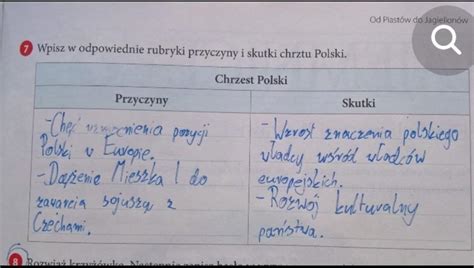 Od Piastów do Jagiellonów
7 Wpisz w odpowiednie rubryki przyczyny i skutki chrztu Polski.
Chrzest Polski
Przyczyny
Skutki
-Chęć wzmocnienia pozycji
Polski w Europie.
-Dążenie Mieszka I do
zawarcia sojuszu z
Czechami.
-Wzrost znaczenia polskiego
władcy wśród władców
europejskich.
-Rozwój kulturalny
państwa.
8 Rozwiąż krzyżówkę. Następnie zapisz hasło